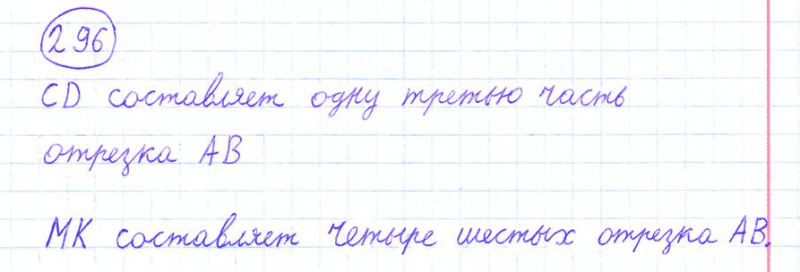 296
CD составляет одну третью часть
отрезка AB
MK составляет четыре шестых отрезка AB.